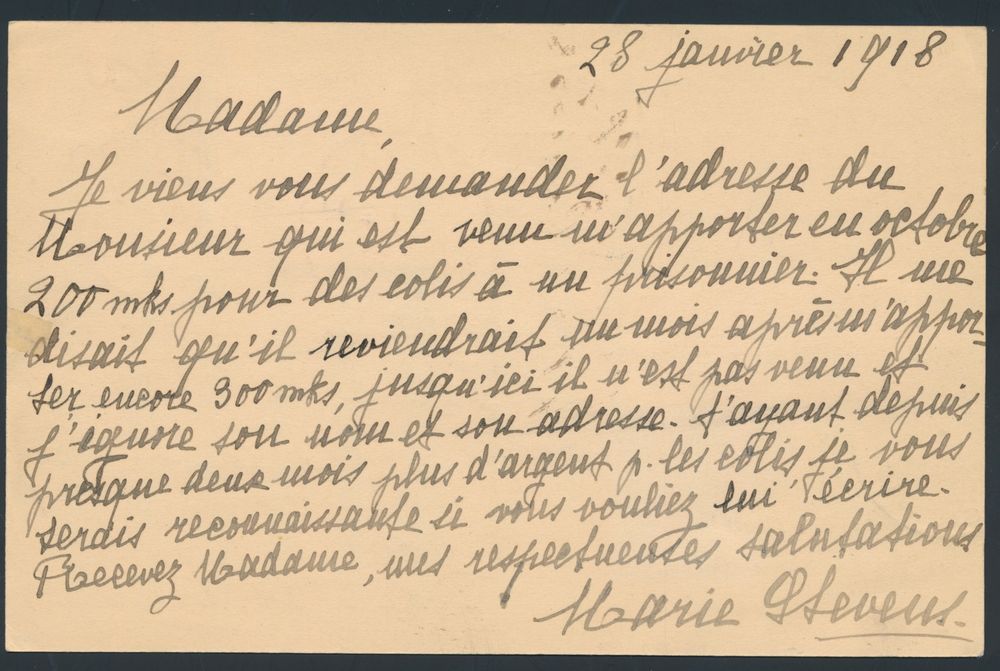 28 janvier 1918
Madame,
Je viens vous demander l'adresse du
Monsieur qui est venu m'apporter en octobre
200 mks pour des colis à un prisonnier. Il me
disait qu'il reviendrait un mois après m'appor-
ter encore 300 mks, jusqu'ici il n'est pas venu et
j'ignore son nom et son adresse. N'ayant depuis
presque deux mois plus d'argent p. les colis je vous
serais reconnaissante si vous vouliez lui écrire.
Recevez Madame, mes respectueuses salutations
Marie Stevens.